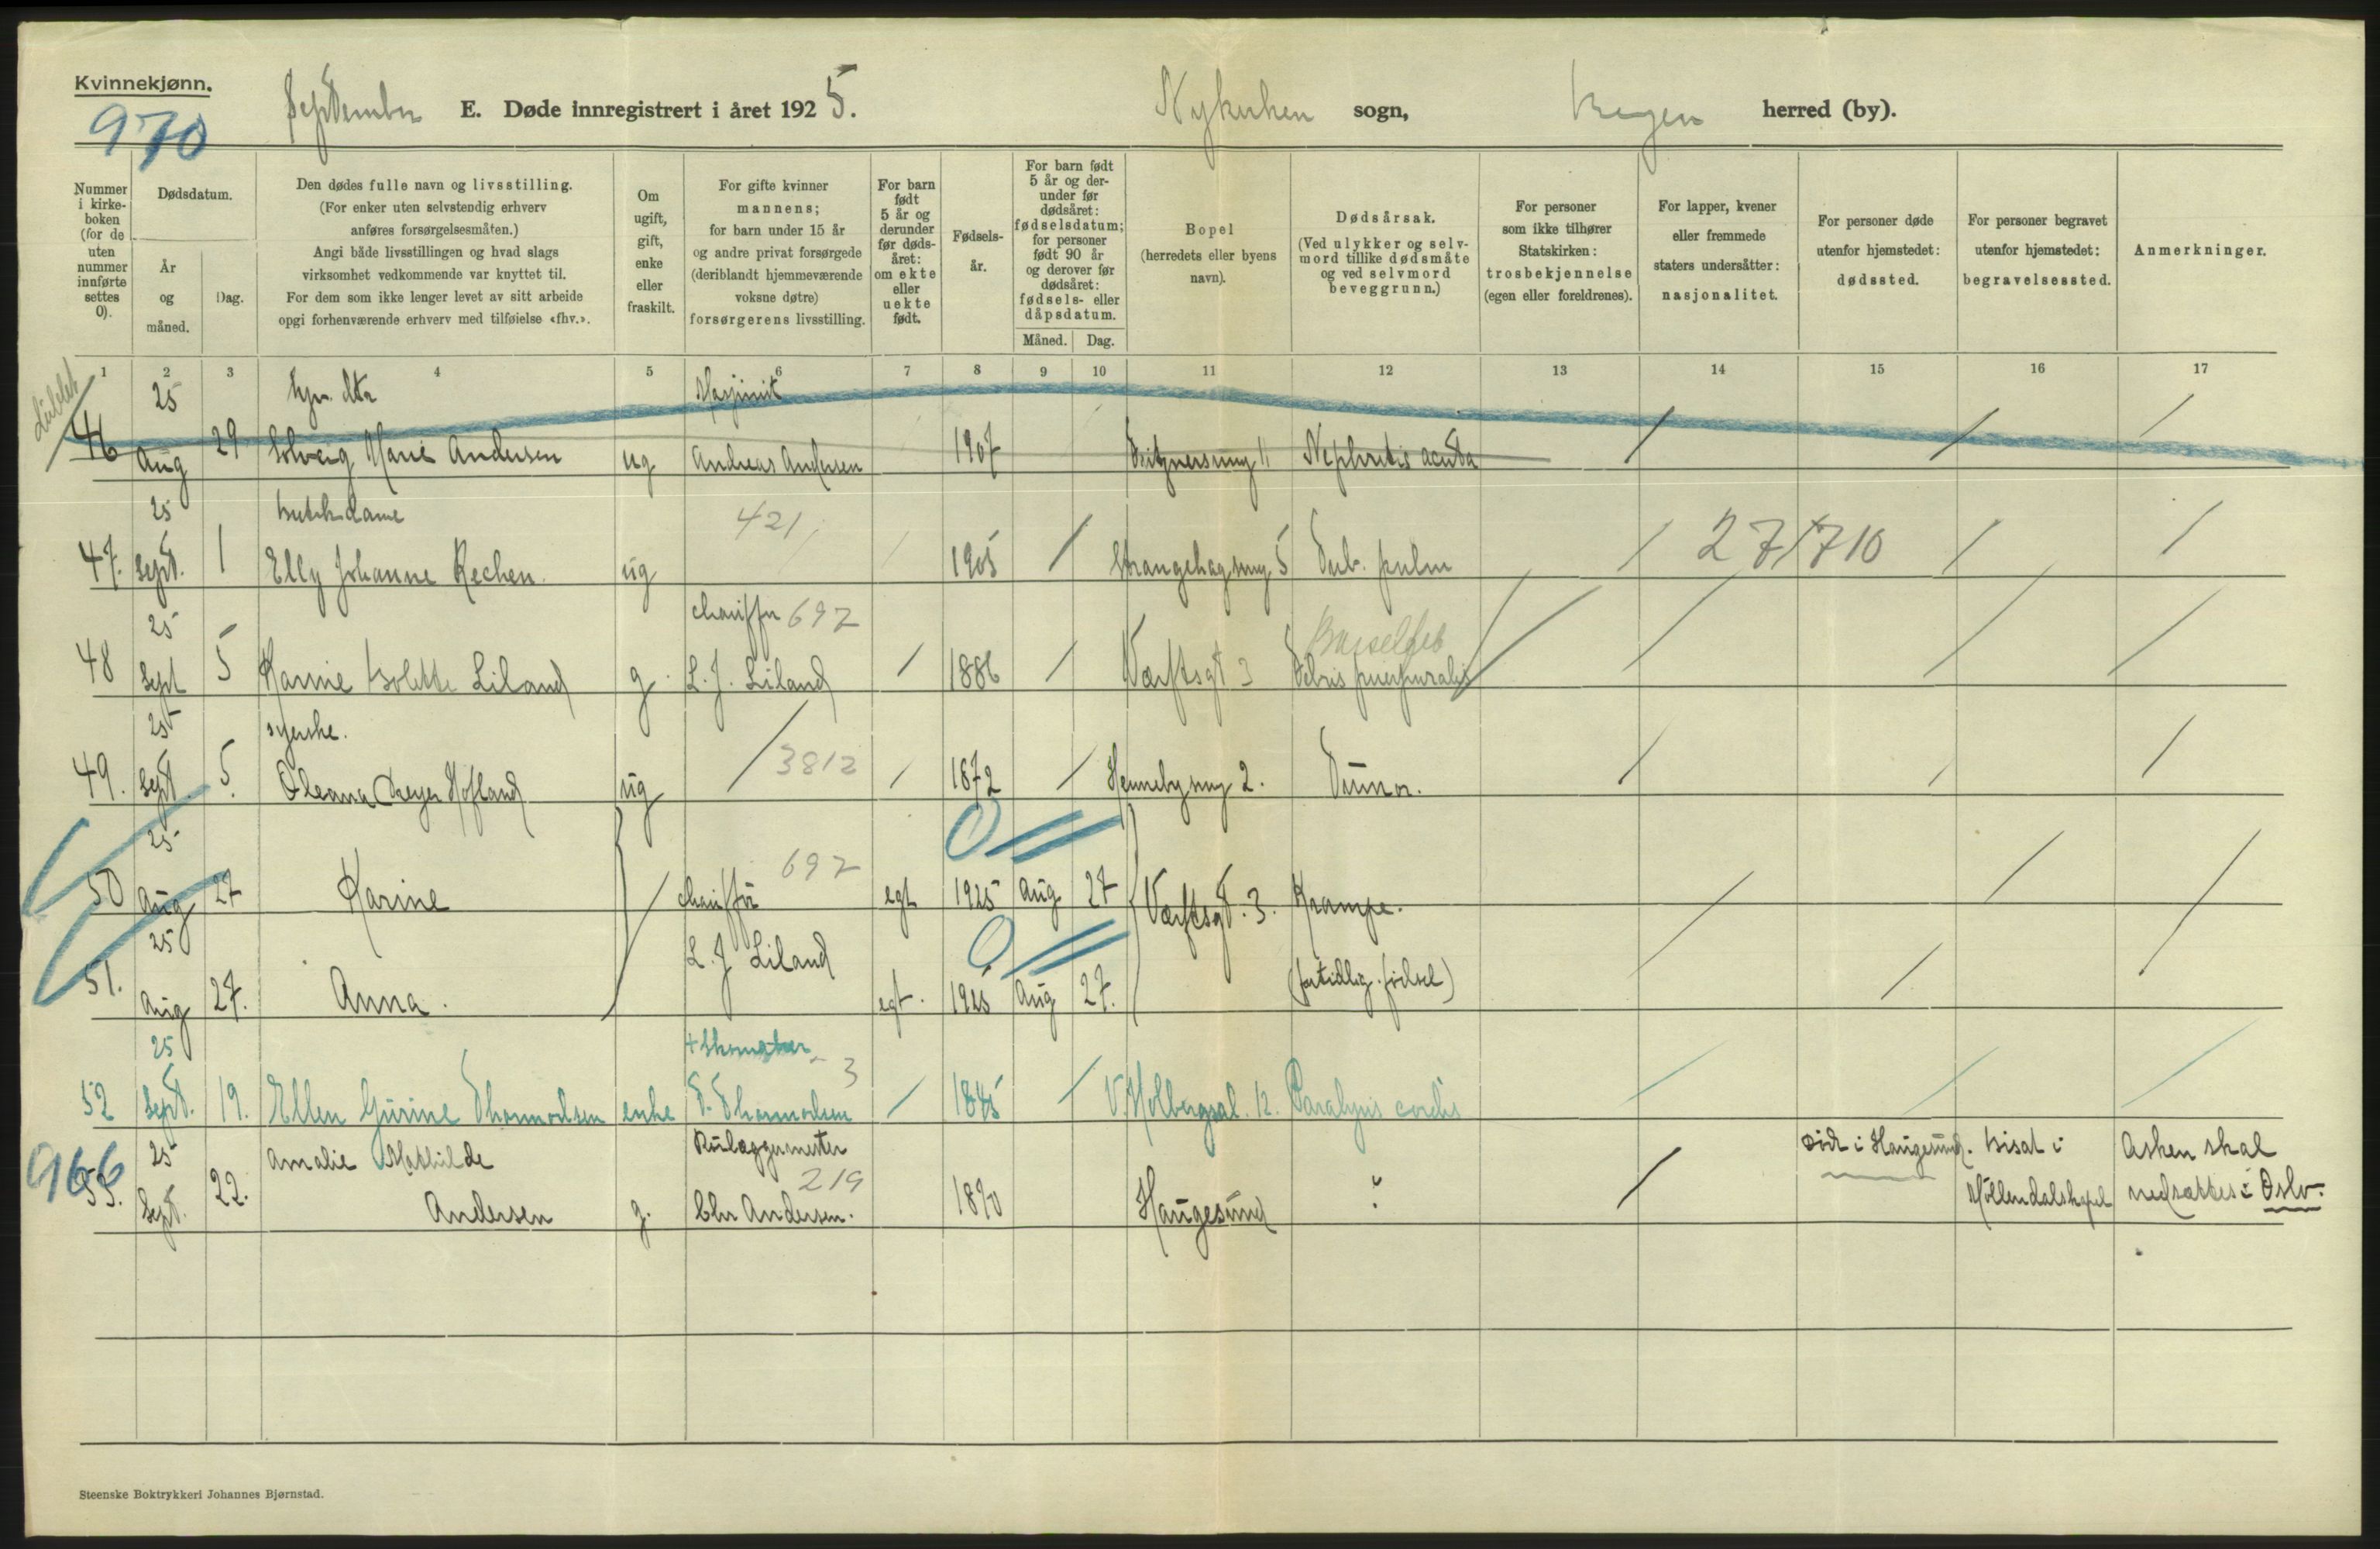 Kvinnekjønn.
970
September E. Døde innregistrert i året 1925. Nykirken sogn, Bergen herred (by).
Nummer i kirkeboken (for de uten nummer innførte settes 0).
Dødsdatum.
År og måned.
Dag.
Den dødes fulle navn og livsstilling.
(For enker uten selvstendig erhverv anføres forsørgelsesmåten.)
Angi både livsstillingen og hvad slags virksomhet vedkommende var knyttet til.
For dem som ikke lenger levet av sitt arbeide opgi forhenværende erhverv med tilføielse «fhv.».
Om ugift, gift, enke eller fraskilt.
For gifte kvinner mannens;
for barn under 15 år og andre privat forsørgede (deriblandt hjemmeværende voksne døtre) forsørgerens livsstilling.
For barn født 5 år og derunder før dødsåret: om ekte eller uekte født.
Fødselsår.
For barn født 5 år og derunder før dødsåret: fødselsdatum; for personer født 90 år og derover før dødsåret: fødsels- eller dåpsdatum.
Måned. Dag.
Bopel
(herredets eller byens navn).
Dødsårsak.
(Ved ulykker og selvmord tillike dødsmåte og ved selvmord beveggrunn.)
For personer som ikke tilhører Statskirken: trosbekjennelse (egen eller foreldrenes).
For lapper, kvener eller fremmede staters undersåtter: nasjonalitet.
For personer døde utenfor hjemstedet: dødssted.
For personer begravet utenfor hjemstedet: begravelsessted.
Anmerkninger.
1 2 3 4 5 6 7 8 9 10 11 12 13 14 15 16 17
25 hjv. dtr Masjinist
46 Aug 29 Solveig Marie Andersen ug Andreas Andersen 1907 11 Nephritis acuta
25 butikdame 421
47. Sept. 1 Elly Johanne Rechen ug 1905 Strangehagsmug 5 Tub. pulm 27/710
25 chauffør 692 Barselfeb
48 Sept 5 Karine Bolette Liland g. L. J. Liland 1886 Værftsgt 3 Febris puerpuralis
25 syerske. 3812
49. Sept. 5. Oleana Dreyer Hofland ug 1872 Hennebysmug 2. Tumor.
25 692 0
50 Aug 27 Karine chauffør egt 1925 Aug 27 Værftsgt. 3. Krampe.
25 L. J. Liland 0
51. Aug 27. Anna. egt. 1925 Aug 27. (fortidlig fødsel)
25 + Skomaker 3
52 Sept. 19. Ellen Gurine Thormodsen enke T. Thormodsen 1845 V. Holbergsal. 12. Paralysis cordis
966
25 Amalie Mathilde Rørlæggermester død i Haugesund. bisat i Asken skal
53. Sept. 22. Andersen g. Chr Andersen. 219 1890 Haugesund ? Møllendalskapel nedsættes i Oslo.
Steenske Boktrykkeri Johannes Bjørnstad.